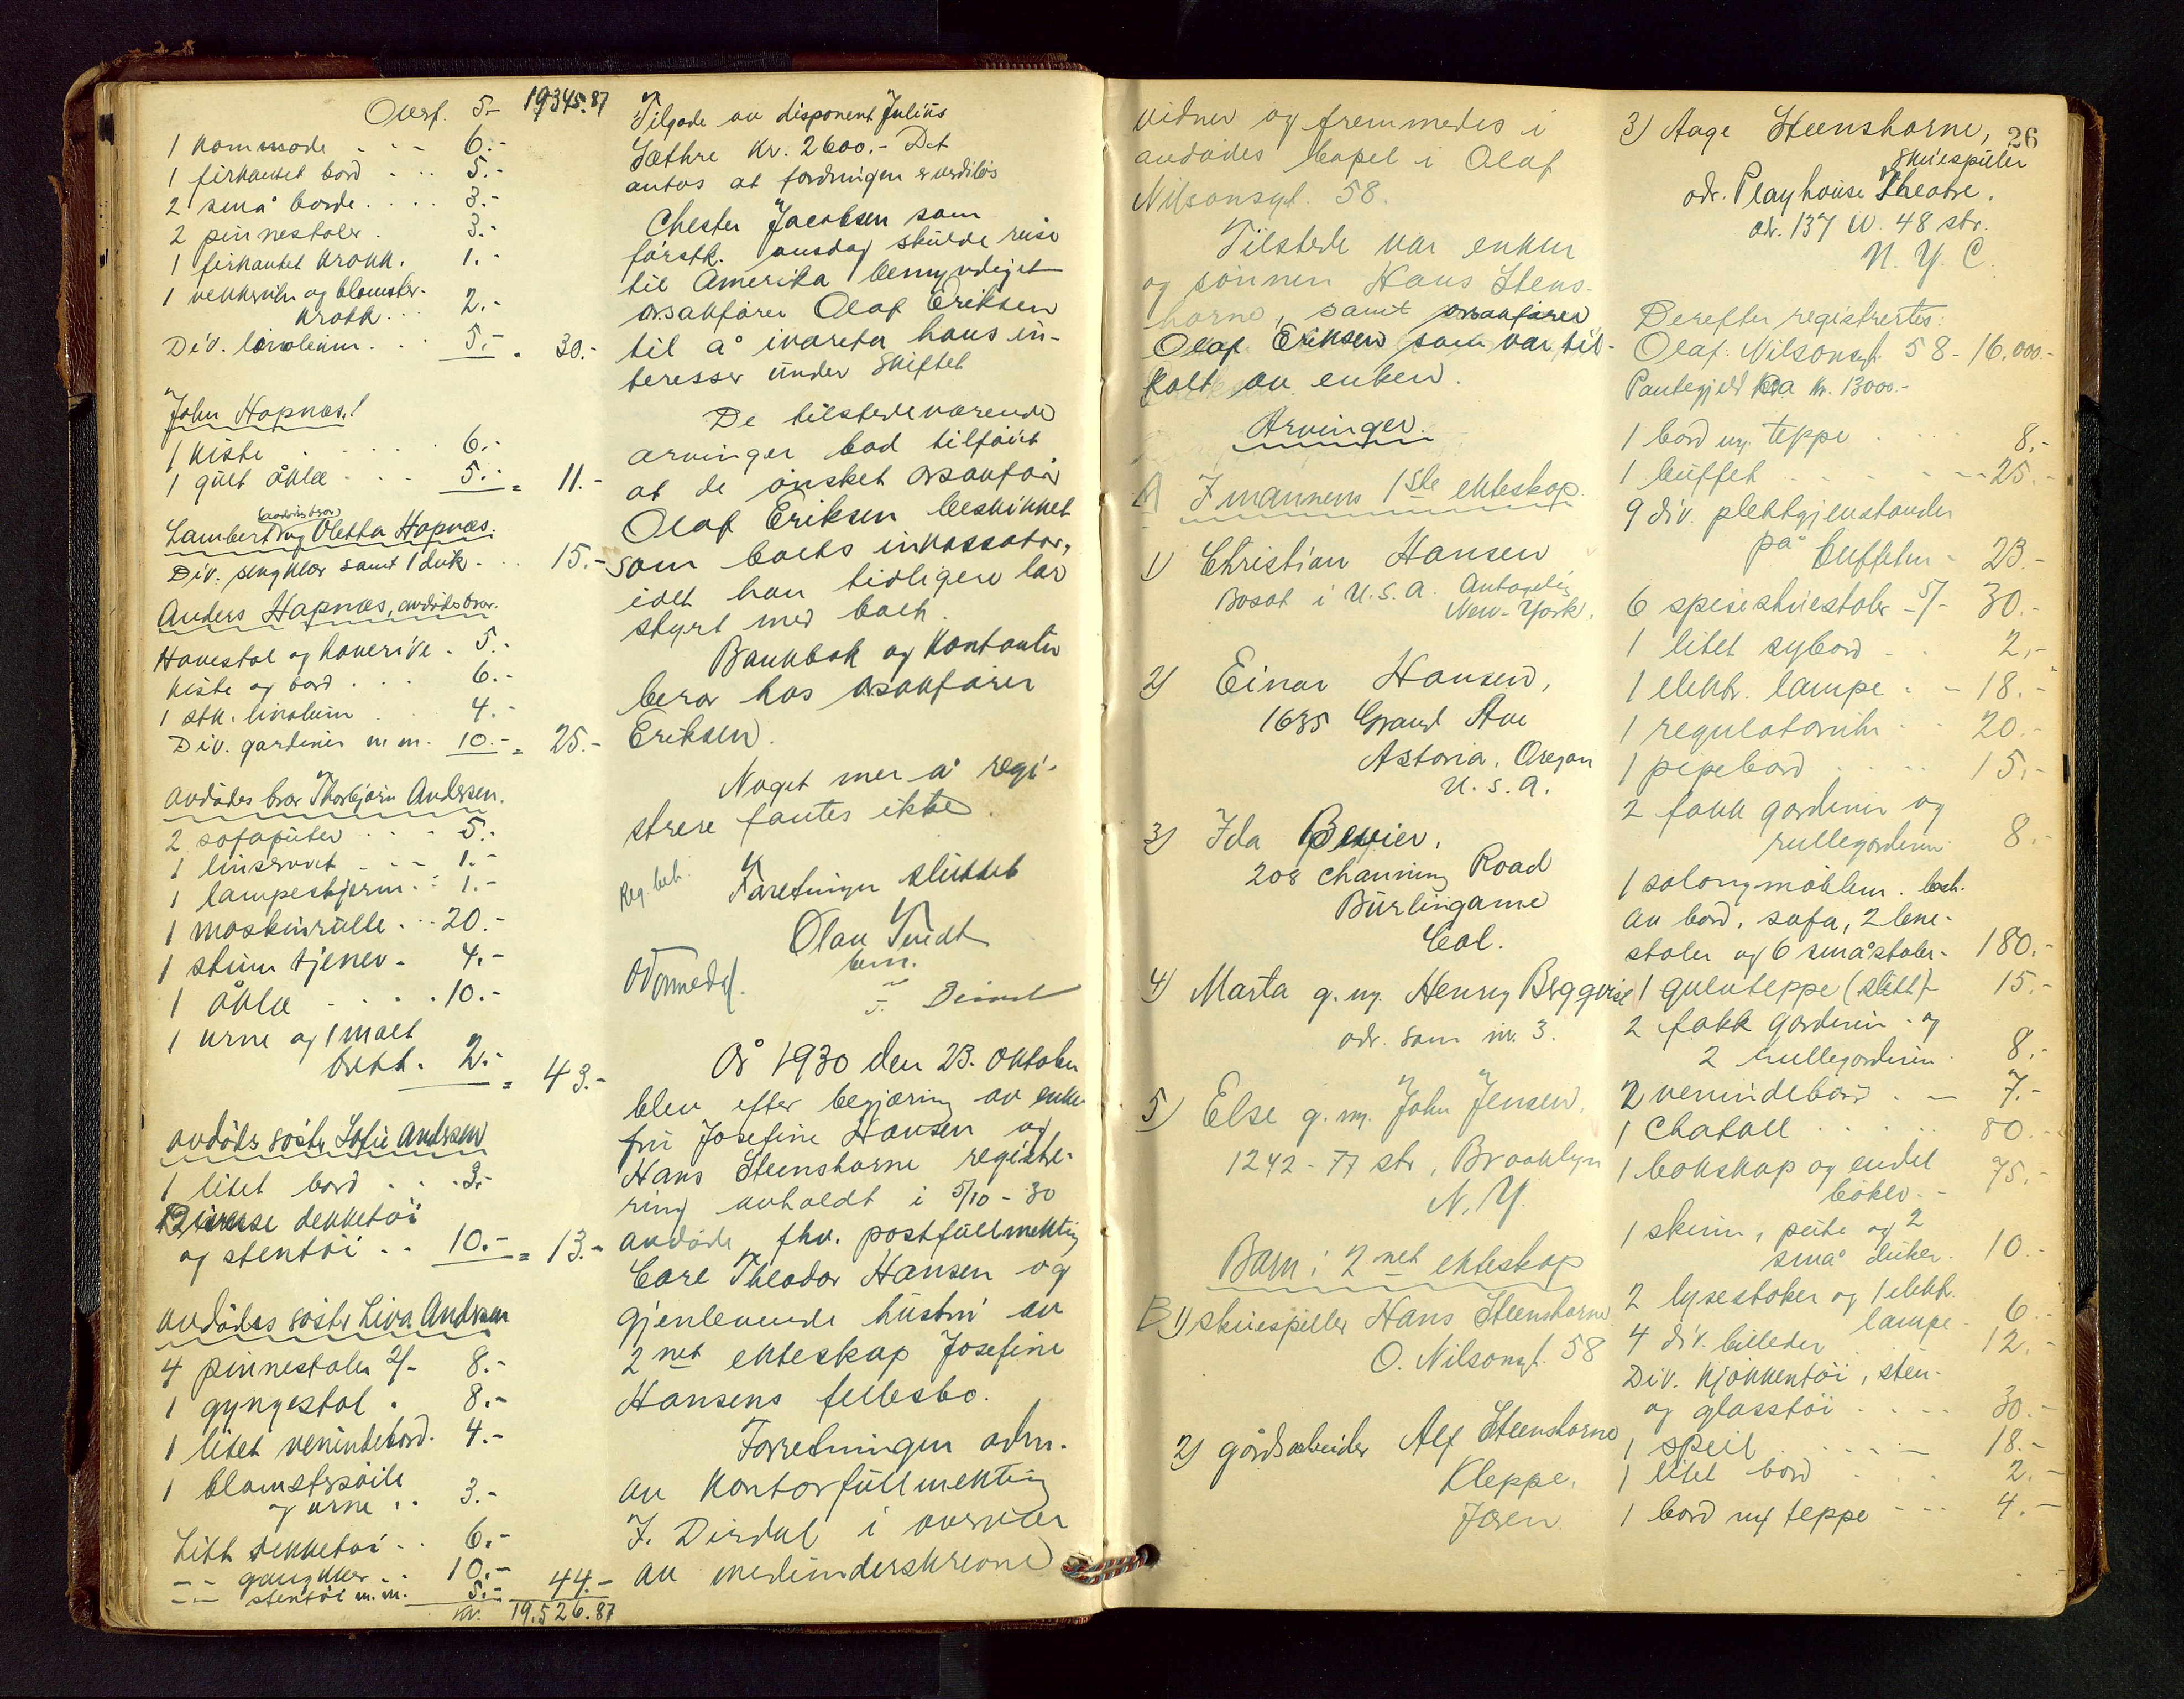 Overf. 5.- 19345.87
1 kommode . . - 6.-
1 firkantet bord - . . 5.-
2 små borde . . . . 3.-
2 pinnestoler . 3.-
1 firkantet krakk. 1.-
1 vekkeruhr og blomster-
krakk . . . 2.-
Div. linoleum . . . 5.- = 30.-
John Hapnæs!
1 kiste . . . . . 6.-
1 gult åklæ - . . . 5.- = 11.-
(avdødes bror)
Lambert og Oletta Hapnæs.
Div. sengklær samt 1 duk - . . 15.-
Anders Hapnæs, avdødes bror.
Havestol og haverive . 5.-
kiste og bord . . . 6.-
1 stk. linoleum . 4.-
Div. gardiner m.m. 10.- = 25.-
avdødes bror Thorbjørn Andersen.
2 sofaputer . . . - 5.-
1 linservet - . . - 1.-
1 lampeskjerm . : 1.-
1 maskinrulle . . . 20.-
1 stum tjener . 4.-
1 åklæ - . . . . 10.-
1 urne og 1 malt
brett . 2.- = 43.-
avdødes søster Sofie Andersen
1 litet bord . . . 3.-
Diverse dekketøi
og stentøi . . 10.- = 13.-
avdødes søster Liva Andersen
4 pinnestoler 2/- 8.-
1 gyngestol . 8.-
1 litet verandebord. 4.-
1 blomstersøile
og urne . . 3.-
Litt dekketøi - . . 6.-
-- gangklær - . . 10.-
-- stentøi m.m. 5.- 44.-
Kr. 19.526.87
Tilgode av disponent Julius
Sæthre Kr. 2600.- Det
antas at fordringen er verdiløs
Chester Jacobsen som
førstk. onsdag skulde reise
til Amerika bemyndiget
o.r.sakfører Olaf Eriksen
til å ivareta hans in-
teresser under skiftet
De tilstedeværende
arvinger bad tilført
at de ønsket o.r.sakfør
Olaf Eriksen beskikket
som boets inkassator,
idet han tidligere har
styrt med boet.
Bankbok og kontanter
beror hos o.r.sakfører
Eriksen.
Noget mer å regi-
strere fantes ikke.
Reg. beh.
Forretningen sluttet
Olav Tvedt
bem.
J. Dirdal
År 1930 den 23. oktober
blev efter begjæring av enke-
fru Josefine Hansen og
Hans Steenshorne registre-
ring avholdt i 5/10 - 30
avdøde fhv. postfullmektig
Carl Theodor Hansen og
gjenlevende hustru av
2net ekteskap Josefine
Hansens fellesbo.
Forretningen adm.
av kontorfullmektig
J. Dirdal i overvær
av medunderskrevne
vidner og fremmedes i
avdødes bopel i Olaf
Nilsonsgt. 58.
Tilstede var enken
og sønnen Hans Steens-
horne, samt o.r.sakfører
Olaf Eriksen som var til-
kalt av enken.
Arvinger.
A I mannens 1ste ekteskap.
1) Christian Hansen
Bosat i U.S.A. Antagelig
New-York.
2) Einar Hansen,
1635 Grand Ave
Astoria, Oregon
U.S.A.
3) Ida Bevier,
208 Channing Road
Burlingame
Cal.
4) Marta g.m. Henry Bergqvist
adr. som nr. 3.
5) Else g.m. John Jensen,
1242 - 77 str, Brooklyn
N.Y.
Barn i 2net ekteskap
B 1) skuespiller Hans Steenshorne
O. Nilsonsgt. 58
2) gårdsarbeider Alf Steenshorne
Kleppe,
Jæren.
26
3) Aage Steenshorne,
Skuespiller
adr. Playhouse Theatre.
adr. 137 W. 48 str.
N.Y.C.
Derefter registrertes:
Olaf Nilsonsgt. 58 - 16.000.-
Pantegjeld ca kr. 13000.-
1 bord m/ teppe . . . . 8.-
1 buffet . . . . - - 25.-
9 div. plettgjenstander
på buffeten - 23.-
6 spisestuestoler - 5/- 30.-
1 litet sybord - . 2.-
1 elektr. lampe . - 18.-
1 regulatoruhr . . 20.-
1 pipebord . . . . . 15.-
2 fakk gardiner og
rullegardiner 8.-
1 salongmøblem. best.
av bord, sofa, 2 lene-
stoler og 6 små stoler - 180.-
1 gulvteppe (slitt) - 15.-
2 fakk gardiner - og
2 rullegardiner . 8.-
2 verandebord . . - 7.-
1 Chatoll . . . . . 50.-
1 bokskap og endel
bøker - . 75.-
1 skinn, pute og 2
små duker . 10.-
2 lysestaker og 1 elektr.
lampe - 6.-
4 div. billeder 12.-
Div. kjøkkentøi, sten-
og glasstøi . . . . 30.-
1 speil . . . . . - 18.-
1 litet bord . . . 2.-
1 bord m/ teppe - - - 4.-